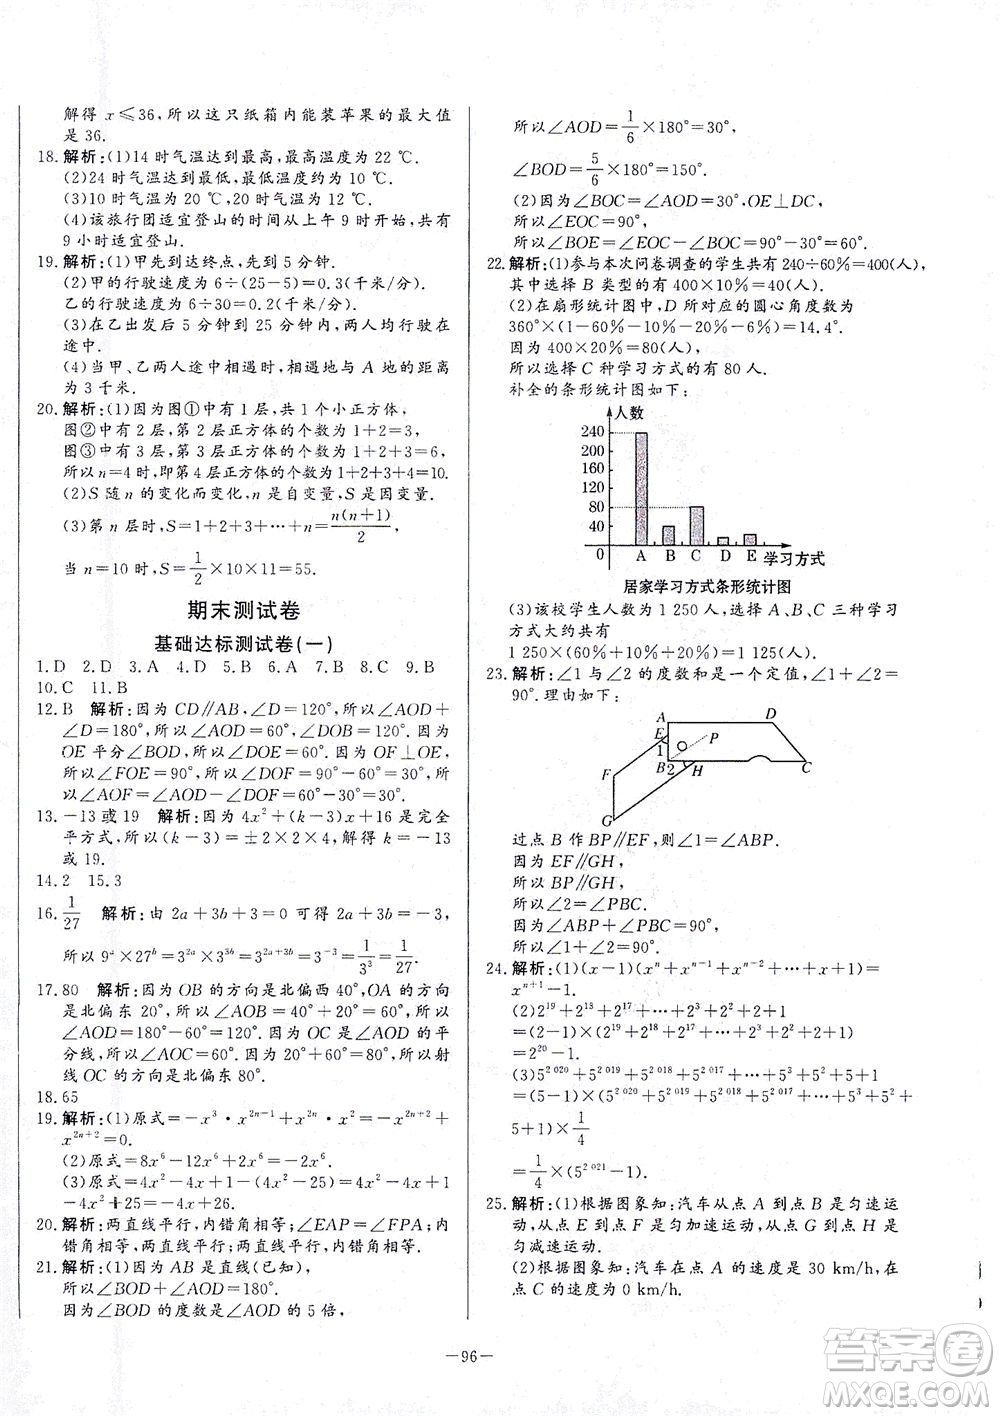 解得 x≤36,所以这只纸箱内能装苹果的最大值
是 36.
18.解析:(1)14 时气温达到最高,最高温度为 22 ℃.
(2)24 时气温达到最低,最低温度为 10 ℃.
(3)10 时气温为 20 ℃,20 时气温为 12 ℃.
(4)该旅行团适宜登山的时间从上午 9 时开始,共有
9 小时适宜登山.
19.解析:(1)甲先到达终点,先到 5 分钟.
(2)甲的行驶速度为 6÷(25-5)=0.3(千米/分钟),
乙的行驶速度为 6÷30=0.2(千米/分钟).
(3)在乙出发后 5 分钟到 25 分钟,两人均行驶在
途中.
(4)当甲、乙两人途中相遇时,相遇处与 A 地的距离
为 3 千米.
20.解析:(1)因为图①中有 1 层,共 1 个小正方体,
图②中有 2 层,第 2 层正方体的个数为 1+2=3,
图③中有 3 层,第 3 层正方体的个数为 1+2+3=6,
所以 n=4 时,即第 4 层正方体的个数为 1+2+3+4=10.
(2)S 随 n 的变化而变化,n 是自变量,S 是因变量.
(3)第 n 层时,S=1+2+3+⋯+n=n(n+1)/2,
当 n=10 时,S=1/2×10×11=55.
期末测试卷
基础达标测试卷(一)
1.D 2.D 3.A 4.D 5.B 6.A 7.B 8.C 9.B
10.C 11.B
12.B 解析:因为 CD∥AB,∠D=120°,所以∠AOD+
∠D=180°,所以∠AOD=60°,∠BOD=120°.因为
OE 平分∠BOD,所以∠DOE=60°.因为 OF⊥OE,
所以∠FOE=90°,所以∠DOF=90°-60°=30°,所
以∠AOF=∠AOD-∠DOF=60°-30°=30°.
13.-13 或 19 解析:因为 4x²+(k-3)x+16 是完全
平方式,所以(k-3)=±2×2×4,解得 k=-13
或 19.
14.2 15.3
16.1/27 解析:由 2a+3b+3=0 可得 2a+3b=-3,
所以 9^a×27^b=3^2a×3^3b=3^(2a+3b)=3^-3=1/3³=1/27.
17.80 解析:因为 OB 的方向是北偏西 40°,OA 的方向
是北偏东 20°,所以∠AOB=40°+20°=60°,所以
∠AOD=180°-60°=120°.因为 OC 是∠AOD 的平
分线,所以∠AOC=60°,20°+60°=80°,所以射
线 OC 的方向是北偏东 80°.
18.65
19.解析:(1)原式=-x³·x^(2n-1)+x^2n·x²=-x^(2n+2)+
x^(2n+2)=0.
(2)原式=8x⁶-12x⁶+2x⁶=-2x⁶.
(3)原式=4x²-4x+1-(4x²-25)=4x²-4x+1-
4x²+25=-4x+26.
20.解析:两直线平行,内错角相等;∠EAP=∠FPA;内
错角相等,两直线平行;两直线平行,内错角相等.
21.解析:(1)因为 AB 是直线(已知),
所以∠BOD+∠AOD=180°.
因为∠BOD 的度数是∠AOD 的 5 倍,
所以∠AOD=1/6×180°=30°,
∠BOD=5/6×180°=150°.
(2)因为∠BOC=∠AOD=30°,OE⊥DC,
所以∠EOC=90°,
所以∠BOE=∠EOC-∠BOC=90°-30°=60°.
22.解析:(1)参与本次问卷调查的学生共有 240÷60%=400(人),
其中选择 B 类型的有 400×10%=40(人).
(2)在扇形统计图中,D 所对应的圆心角度数为
360°×(1-60%-10%-20%-6%)=14.4°.
因为 400×20%=80(人),
所以选择 C 种学习方式的有 80 人.
补全的条形统计图如下:
人数
240
200
160
120
80
40
0 A B C D E 学习方式
居家学习方式条形统计图
(3)该校学生人数为 1 250 人,选择 A、B、C 三种学习
方式大约共有
1 250×(60%+10%+20%)=1 125(人).
23.解析:∠1 与∠2 的度数和是一个定值,∠1+∠2=
90°.理由如下:
A D
E P
1
B 2 H C
F
G
过点 B 作 BP∥EF,所以∠1=∠ABP.
因为 EF∥GH,
所以 BP∥GH,
所以∠2=∠PBC.
因为∠ABP+∠PBC=90°,
所以∠1+∠2=90°.
24.解析:(1)(x-1)(x^n+x^(n-1)+x^(n-2)+⋯+x+1)=
x^(n+1)-1.
(2)2¹⁹+2¹⁸+2¹⁷+⋯+2³+2²+2+1
=(2-1)×(2¹⁹+2¹⁸+2¹⁷+⋯+2³+2²+2+1)
=2²⁰-1.
(3)5^2 020+5^2 019+5^2 018+5^2 017+⋯+5²+5+1
=(5-1)×(5^2 020+5^2 019+5^2 018+5^2 017+⋯+5²+
5+1)×1/4
=1/4×(5^2 021-1).
25.解析:(1)根据图象知:汽车从点 A 到点 B 是匀速运
动,从点 E 到点 F 是匀加速运动,从点 G 到点 H 是
匀减速运动.
(2)根据图象知:汽车在点 A 的速度是 30 km/h,在
点 C 的速度为 0 km/h.
—96—
答案圈
MXQE.COM